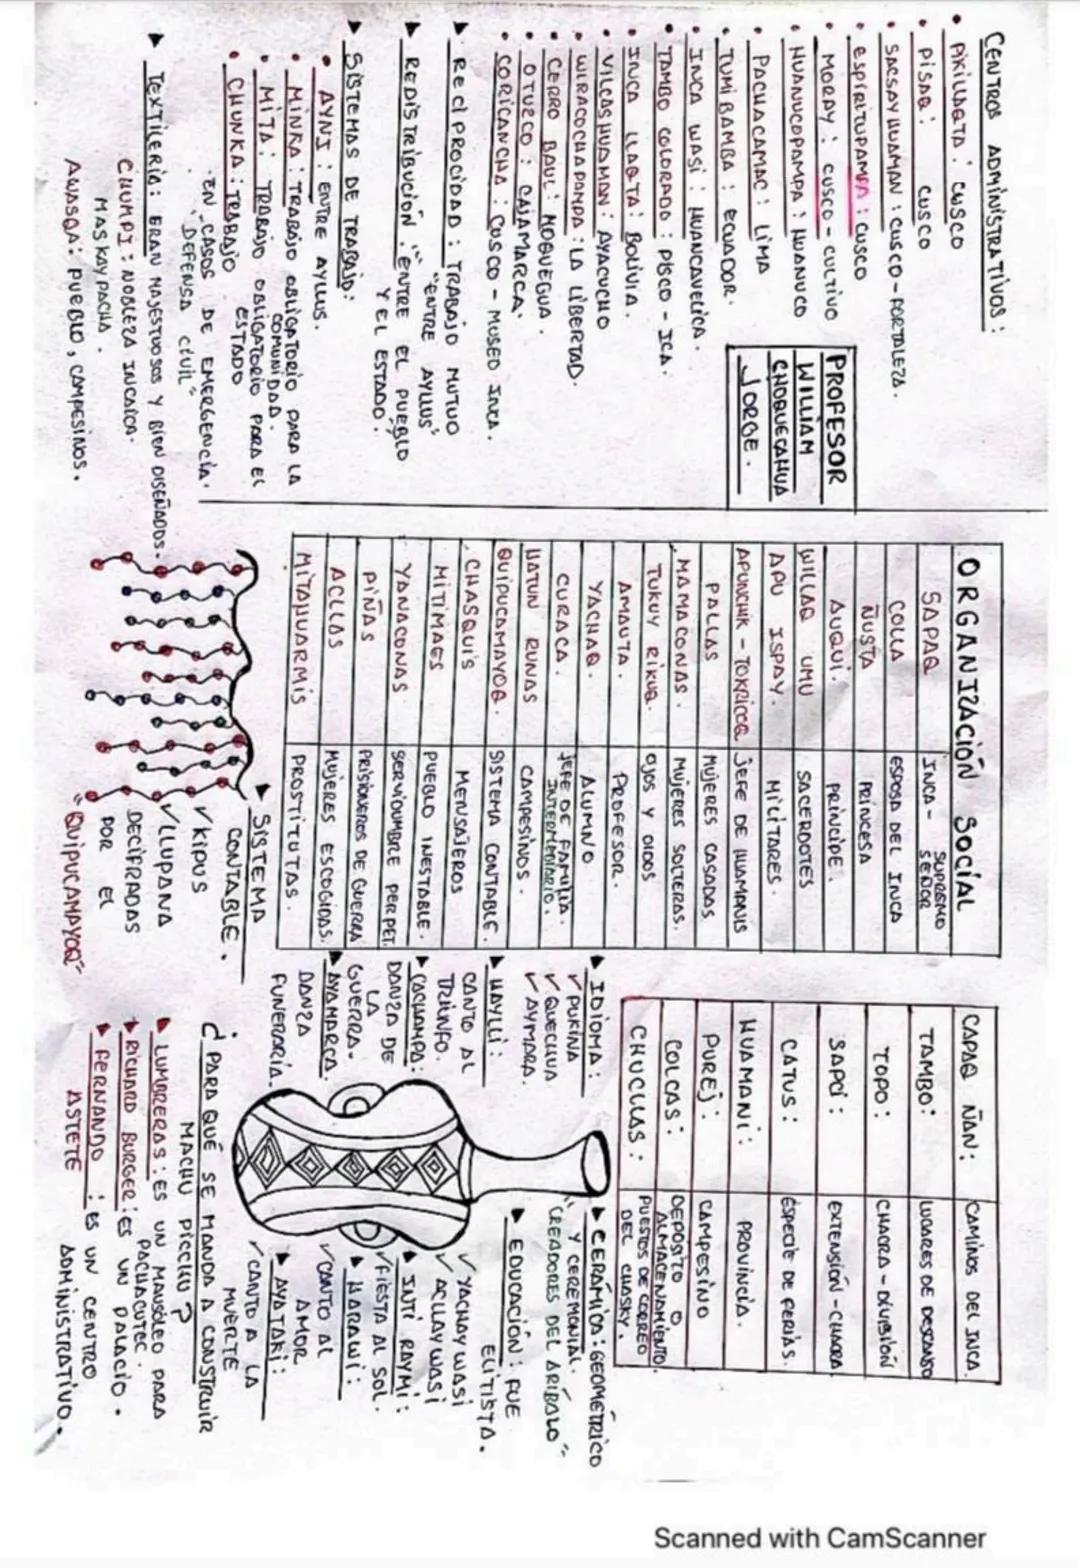 CENTROS ADMINISTRATIVOS:
• PIKILLAQTA: CUSCO
• PISAQ: CUSCO
• SACSAYHUAMAN: CUSCO - FORTALEZA.
• ESPÍRITUPAMPA: CUSCO
• MORAY: CUSCO - CULTIVO
• HUANUCOPAMPA: HUANUCO
• PACHACAMAC: LIMA
• TUMIBAMBA: ECUADOR.
• INCA WASI: HUANCAVELICA.
• TAMBO COLORADO: PISCO - ICA.
• INCA LLAQTA: BOLIVIA.
• VILCASHUAMAN: AYACUCHO
• WIRACOCHAPAMPA: LA LIBERTAD.
• CERRO BAUL: MOQUEGUA.
• OTUZCO: CAJAMARCA.
• CORICANCHA: CUSCO - MUSEO INCA.
PROFESOR
WILLIAM
CHOQUECAHUA
JORGE.
▶ RECIPROCIDAD: TRABAJO MUTUO
"ENTRE AYLLUS"
▶ REDISTRIBUCIÓN: "ENTRE EL PUEBLO
Y EL ESTADO".
▶ SISTEMAS DE TRABAJO:
• AYNI: ENTRE AYLLUS.
• MINKA: TRABAJO OBLIGATORIO PARA LA
COMUNIDAD.
• MITA: TRABAJO OBLIGATORIO PARA EL
ESTADO
• CHUNKA: TRABAJO
EN CASOS DE EMERGENCIA.
"DEFENSA CIVIL"
▶ TEXTILERÍA: ERAN MAJESTUOSOS Y BIEN DISEÑADOS.
CHUMPI: NOBLEZA INCAICA.
MASKAYPACHA.
AWASQA: PUEBLO, CAMPESINOS.
ORGANIZACIÓN SOCIAL
SAPAQ INCA - SUPREMO SEÑOR
COLLA ESPOSA DEL INCA
ÑUSTA PRINCESA
AUQUI. PRÍNCIPE.
WILLAQ UMU SACERDOTES
APU ISPAY. MILITARES.
APUNCHIK - TOKRICOQ JEFE DE HUAMANIS
PALLAS MUJERES CASADAS
MAMACONAS. MUJERES SOLTERAS.
TUKUY RIKUQ. OJOS Y OIDOS
AMAUTA. PROFESOR.
YACHAQ. ALUMNO
CURACA. JEFE DE FAMILIA. INTERMEDIARIO.
HATUN RUNAS CAMPESINOS.
QUIPUCAMAYOQ. SISTEMA CONTABLE.
CHASQUI'S MENSAJEROS
MITIMAES PUEBLO INESTABLE.
YANACONAS SERVIDUMBRE PERPET.
PIÑAS PRISIONEROS DE GUERRA
ACLLAS MUJERES ESCOGIDAS.
MITAHUARMIS PROSTITUTAS.
▶ SISTEMA
CONTABLE.
✓ KIPUS
✓ LLUPANA
DECIFRADAS
POR EL
"QUIPUCAMAYOQ"
CAPAQ ÑAN: CAMINOS DEL INCA.
TAMBO: LUGARES DE DESCANSO
TOPO: CHACRA - DIVISIÓN
SAPCI: EXTENSIÓN - CHACRA
CATUS: ESPECIE DE FERIAS.
HUAMANI: PROVINCIA.
PUREJ: CAMPESINO
COLCAS: DEPOSTO O ALMACENAMIENTO.
CHUCLLAS: PUESTOS DE CORREO DEL CHASKY.
▶ IDIOMA:
✓ PUKINA
✓ QUECHUA
✓ AYMARA.
▶ HAYLLI:
CANTO AL
TRIUNFO.
▶ CACHAMPA:
DANZA DE
LA
GUERRA.
▶ AYAMARCA.
DANZA
FUNERARIA.
▶ CERÁMICA: GEOMÉTRICO
Y CEREMONIAL.
"CREADORES DEL ARÍBALO"
▶ EDUCACIÓN: FUE
ELITISTA.
✓ YACHAYWASI
✓ ACLLAYWASI
▶ INTI RAYMI:
✓ FIESTA AL SOL.
▶ HARAWI:
✓ CANTO AL
AMOR
▶ AYATAKI:
✓ CANTO A LA
MUERTE
¿PARA QUÉ SE MANDA A CONSTRUIR
MACHU PICCHU?
▶ LUMBRERAS: ES UN MAUSOLEO PARA
PACHACUTEC.
▶ RICHARD BURGER: ES UN PALACIO.
▶ FERNANDO ASTETE: ES UN CENTRO
ADMINISTRATIVO.
Scanned with CamScanner